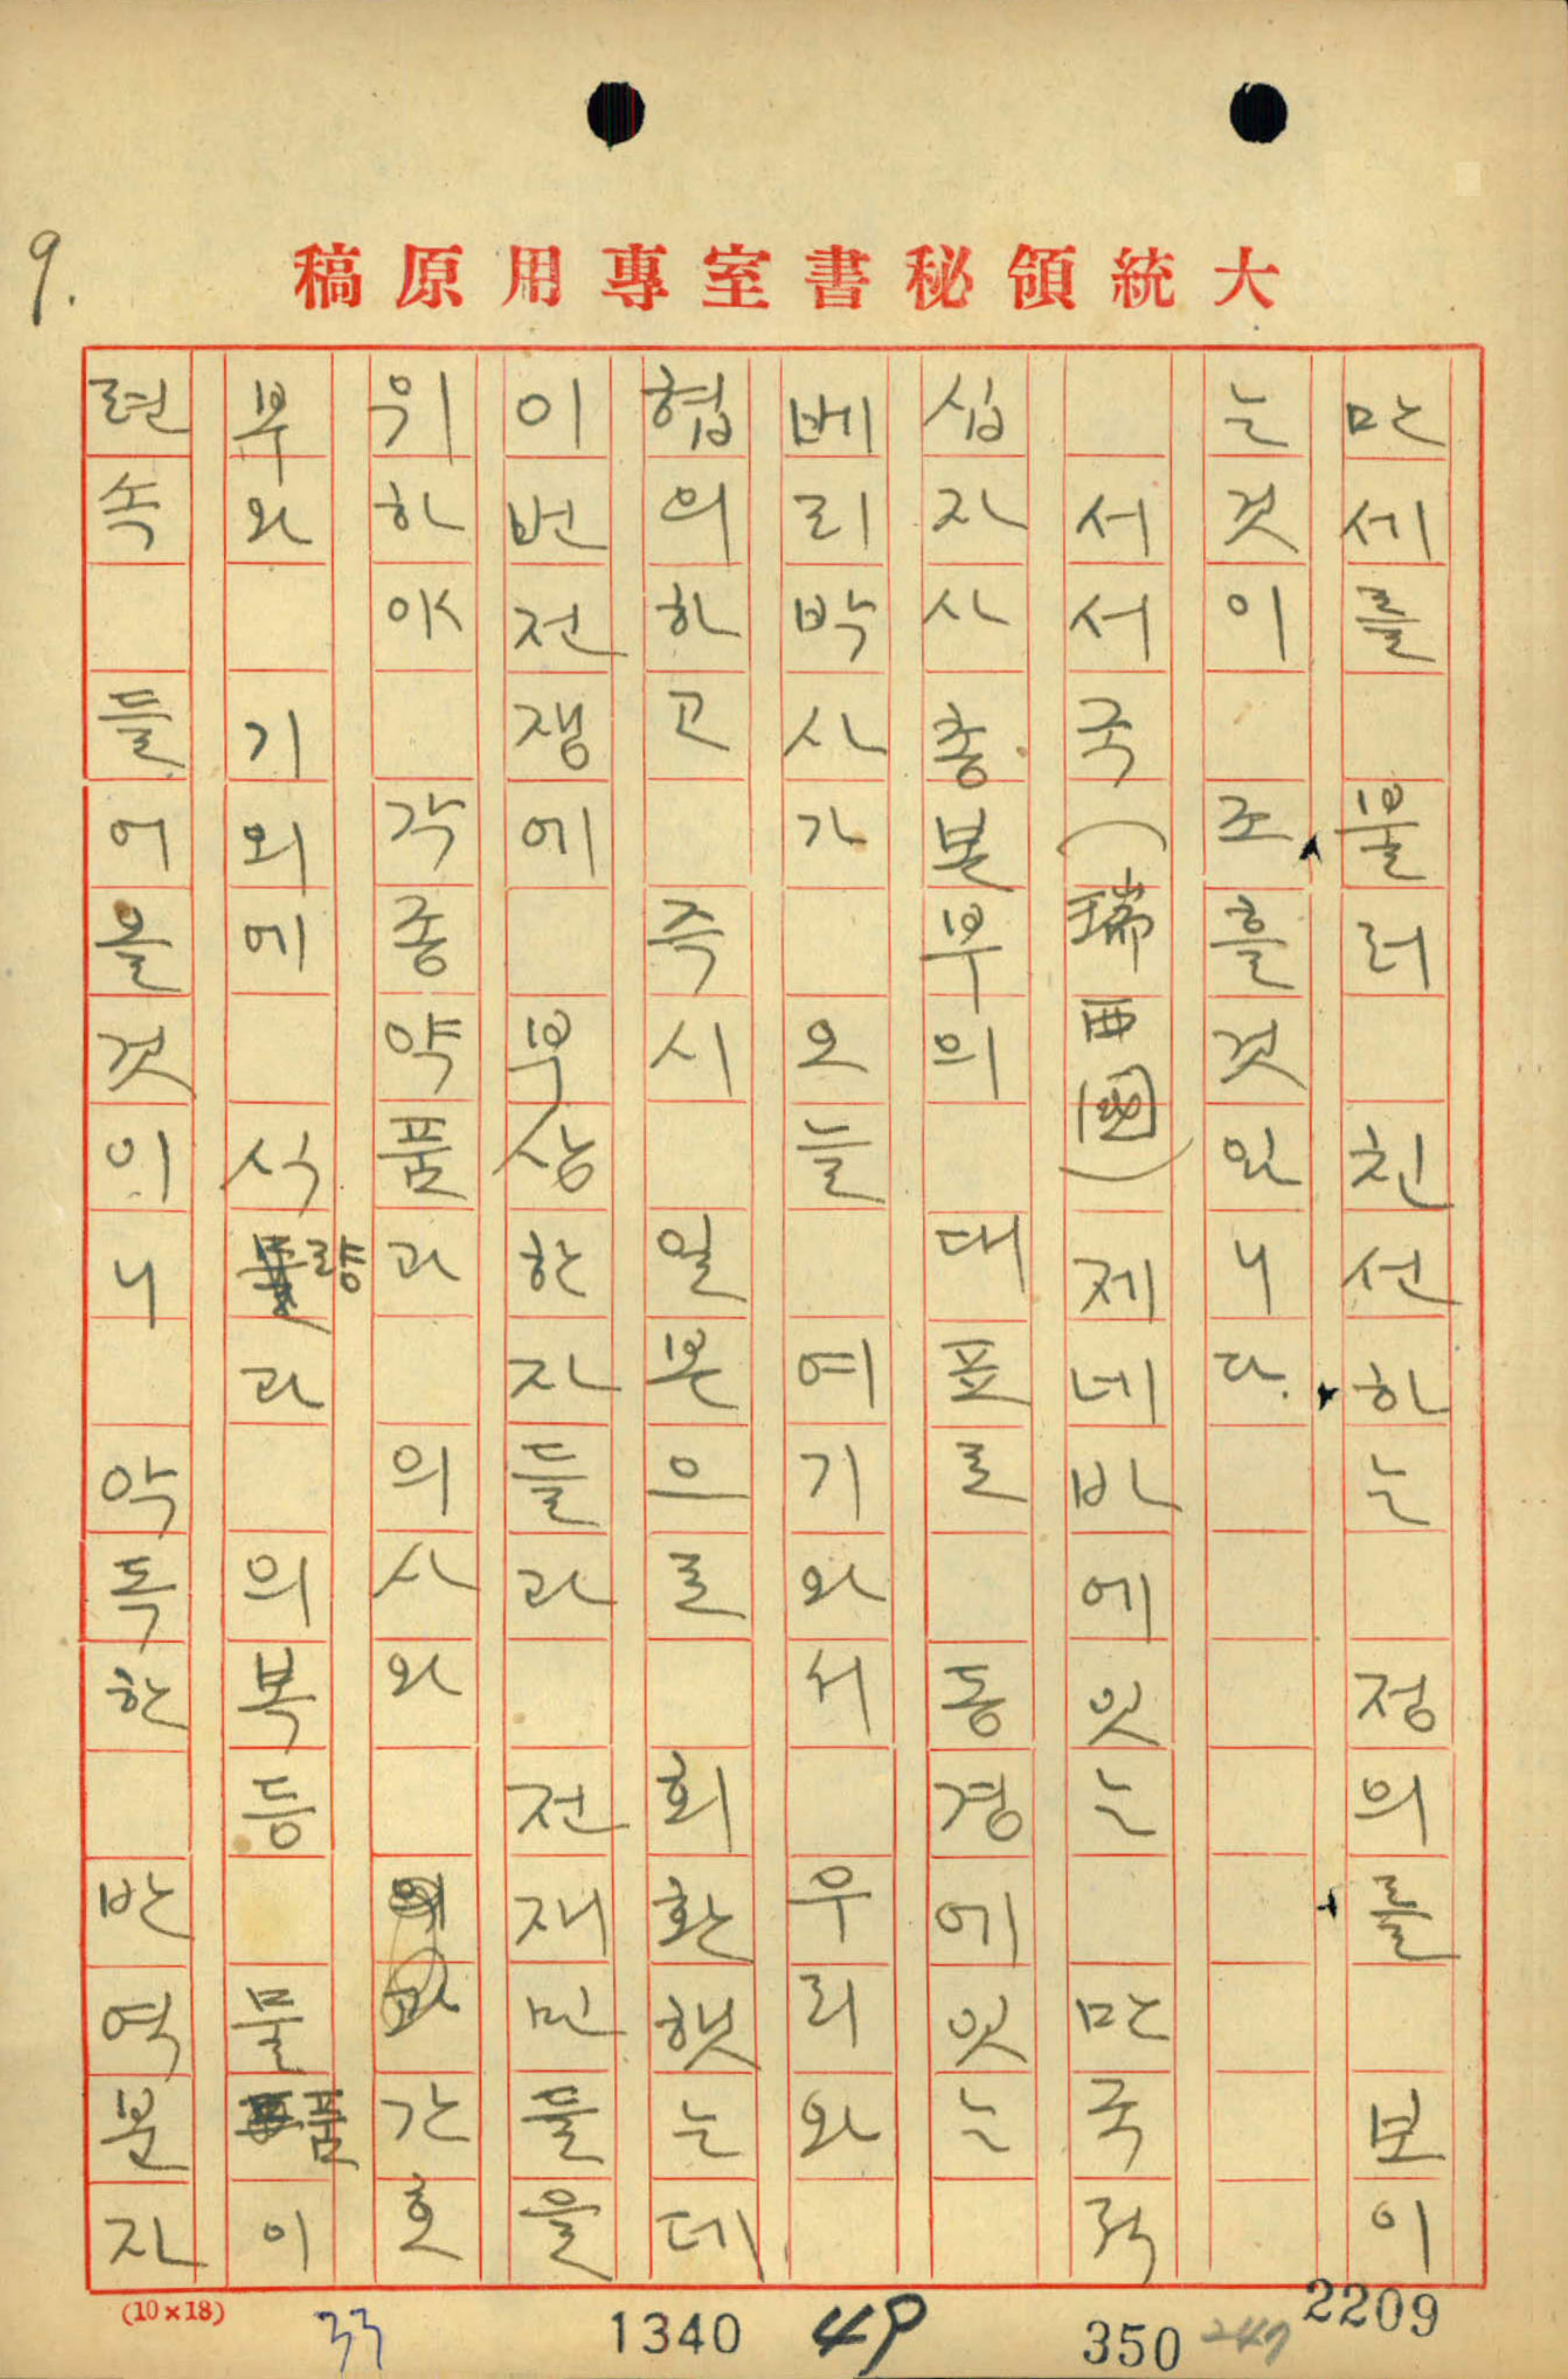 9.
大統領秘書室專用原稿
만세를 불러 친선하는 정의를 보이
는것이 조흘것인니다.
서서국(瑞西國)제네바에잇는 만국적
십자사총본부의 대표로 동경에잇는
베리박사가 오늘 여기와서 우리와
협의하고 즉시 일본으로 회환햇는데
이번전쟁에 부상한자들과 전재민들을
위하야 각종약품과 의사와 간호
부와 기외에 식량과 의복등 물품이
련속 들어올것이니 악독한 반역분자
(10×18)
33
1340
49
350
249
2209